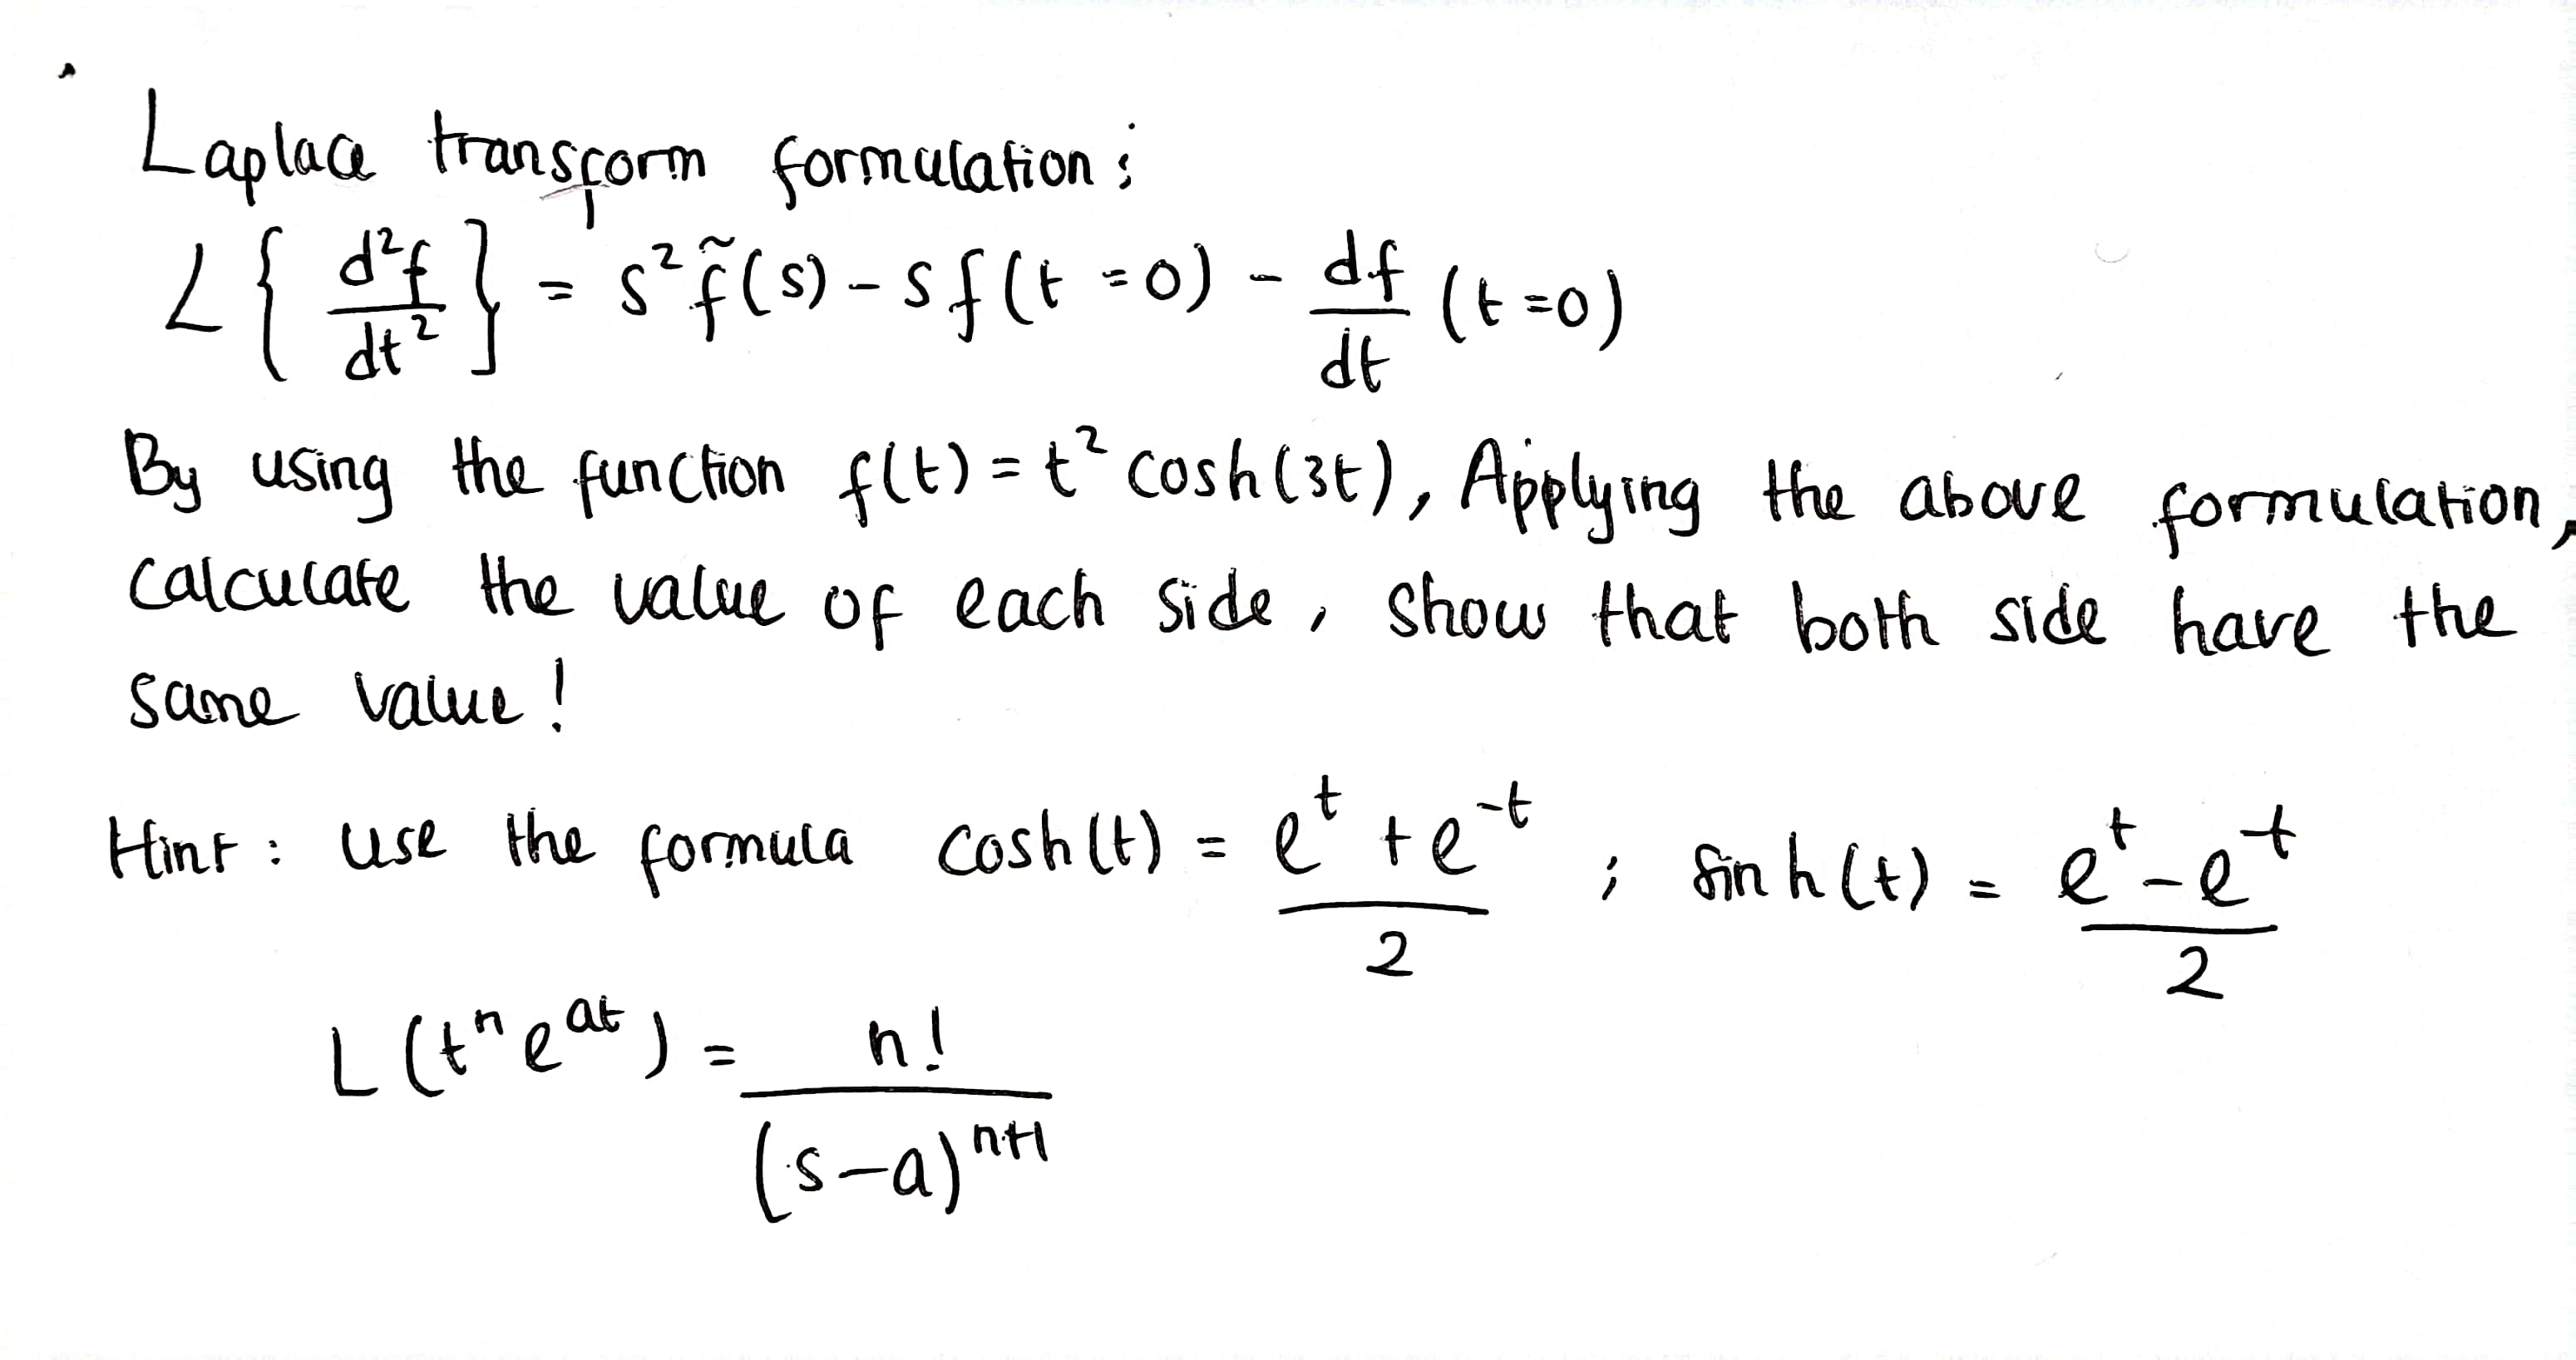 Laplace transform formulation :
L { d²f/dt² } = s² f̃(s) - s f(t = 0) - df/dt (t = 0)
By using the function f(t) = t² cosh(3t), Applying the above formulation,
calculate the value of each side, show that both side have the
same value !
Hint : use the formula cosh(t) = (e^t + e^-t)/2 ; sinh(t) = (e^t - e^-t)/2
L (t^n e^at) = n!/(s-a)^n+1